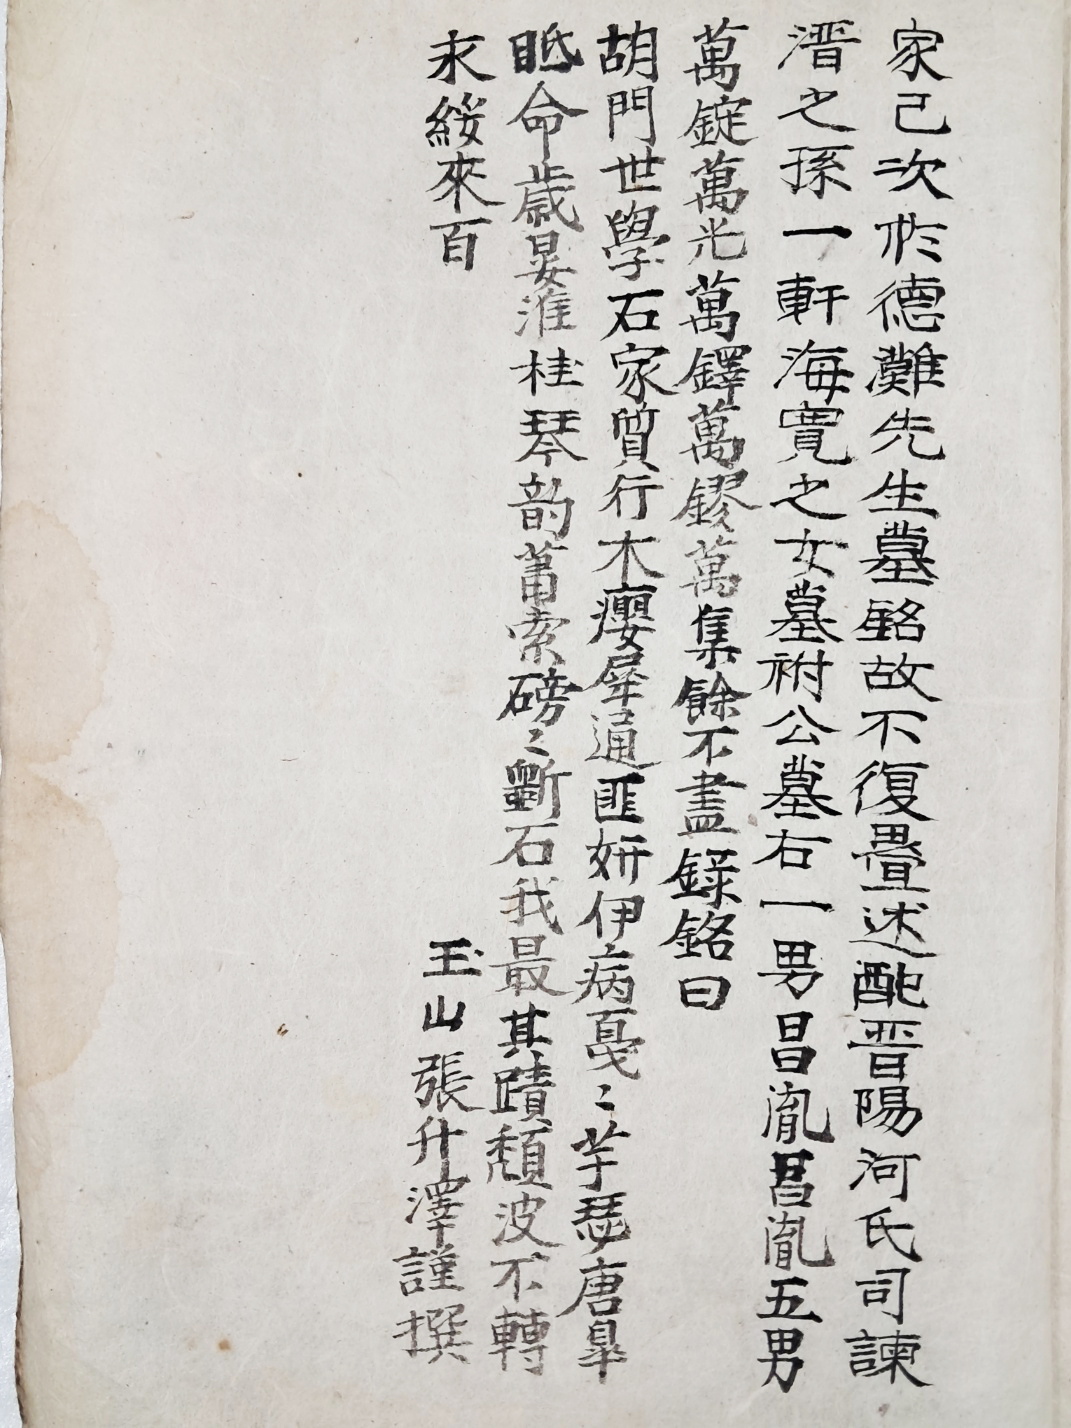 家己次於德灘先生墓銘故不復疊述配晉陽河氏司諫
溍之孫一軒海寬之女墓祔公墓右一男昌胤昌胤五男
萬錠萬光萬鐸萬鏐萬集餘不盡錄銘曰
胡門世學石家質行木癭犀通匪妍伊病戞〻竽瑟唐皐
眡命歲晏淮桂琴韵菖索磅〻斷石我最其蹟頹波不轉
永綏來百
玉山張升澤謹撰